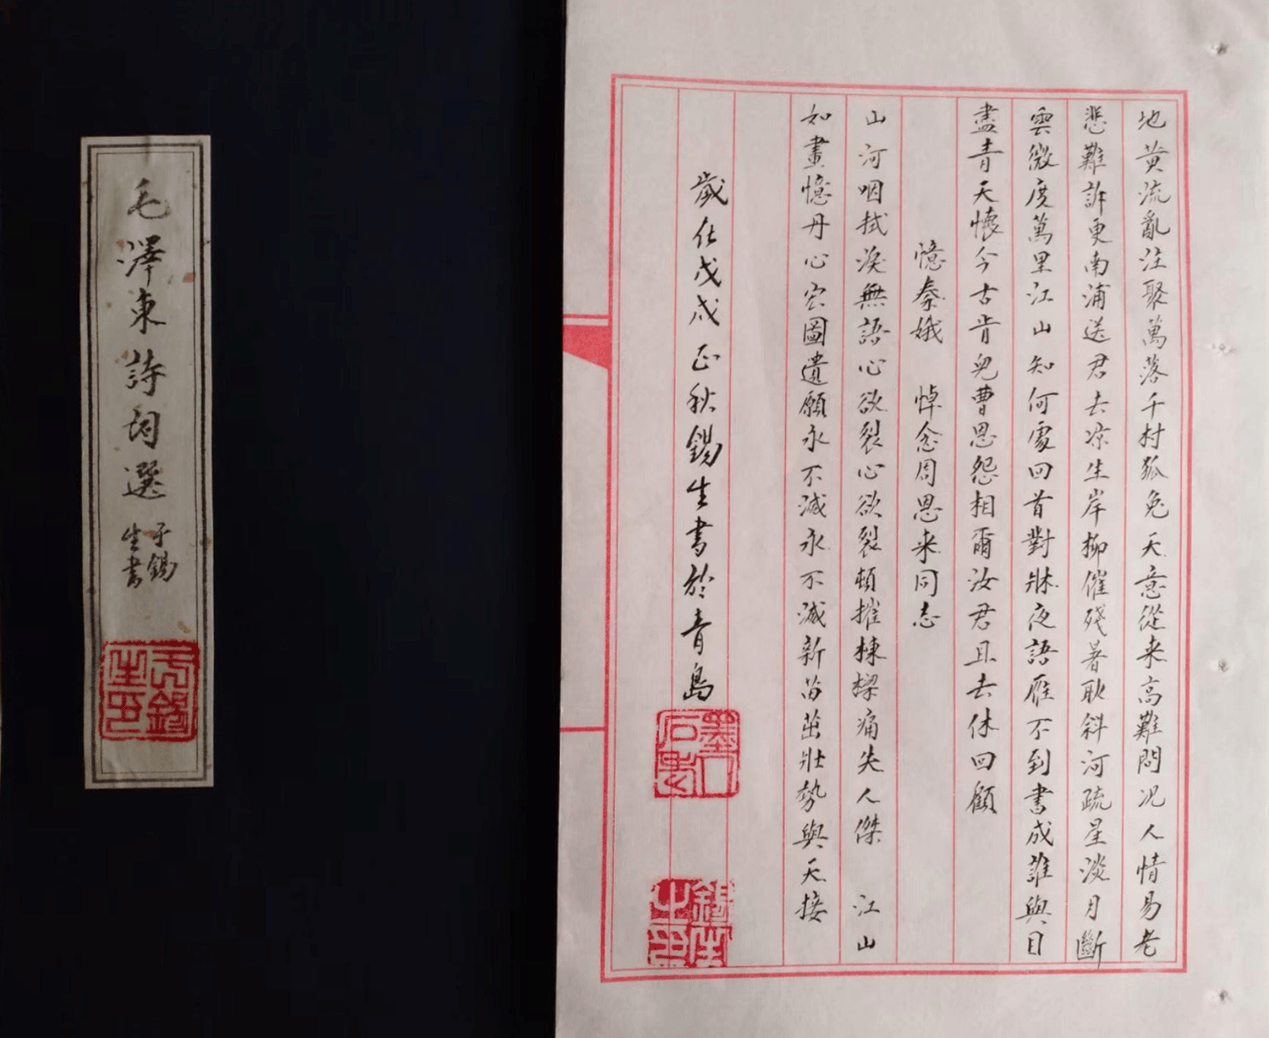 毛澤東詩詞選
于錫
生書
于錫
生印
地黄流亂注聚萬落千村狐兔天意從来高難問况人情易老
悲難訴更南浦送君去凉生岸柳催殘暑耿斜河疏星淡月斷
雲微度萬里江山知何處回首對牀夜語雁不到書成誰與目
盡青天懷今古肯兒曹恩怨相爾汝君且去休回顧
憶秦娥 悼念周恩来同志
山河咽拭淚無語心欲裂心欲裂頓摧棟樑痛失人傑 江山
如畫憶丹心宏圖遺願永不滅永不滅新苗茁壯勢與天接
歲在戊戌正秋錫生書於青島
錫生
之印